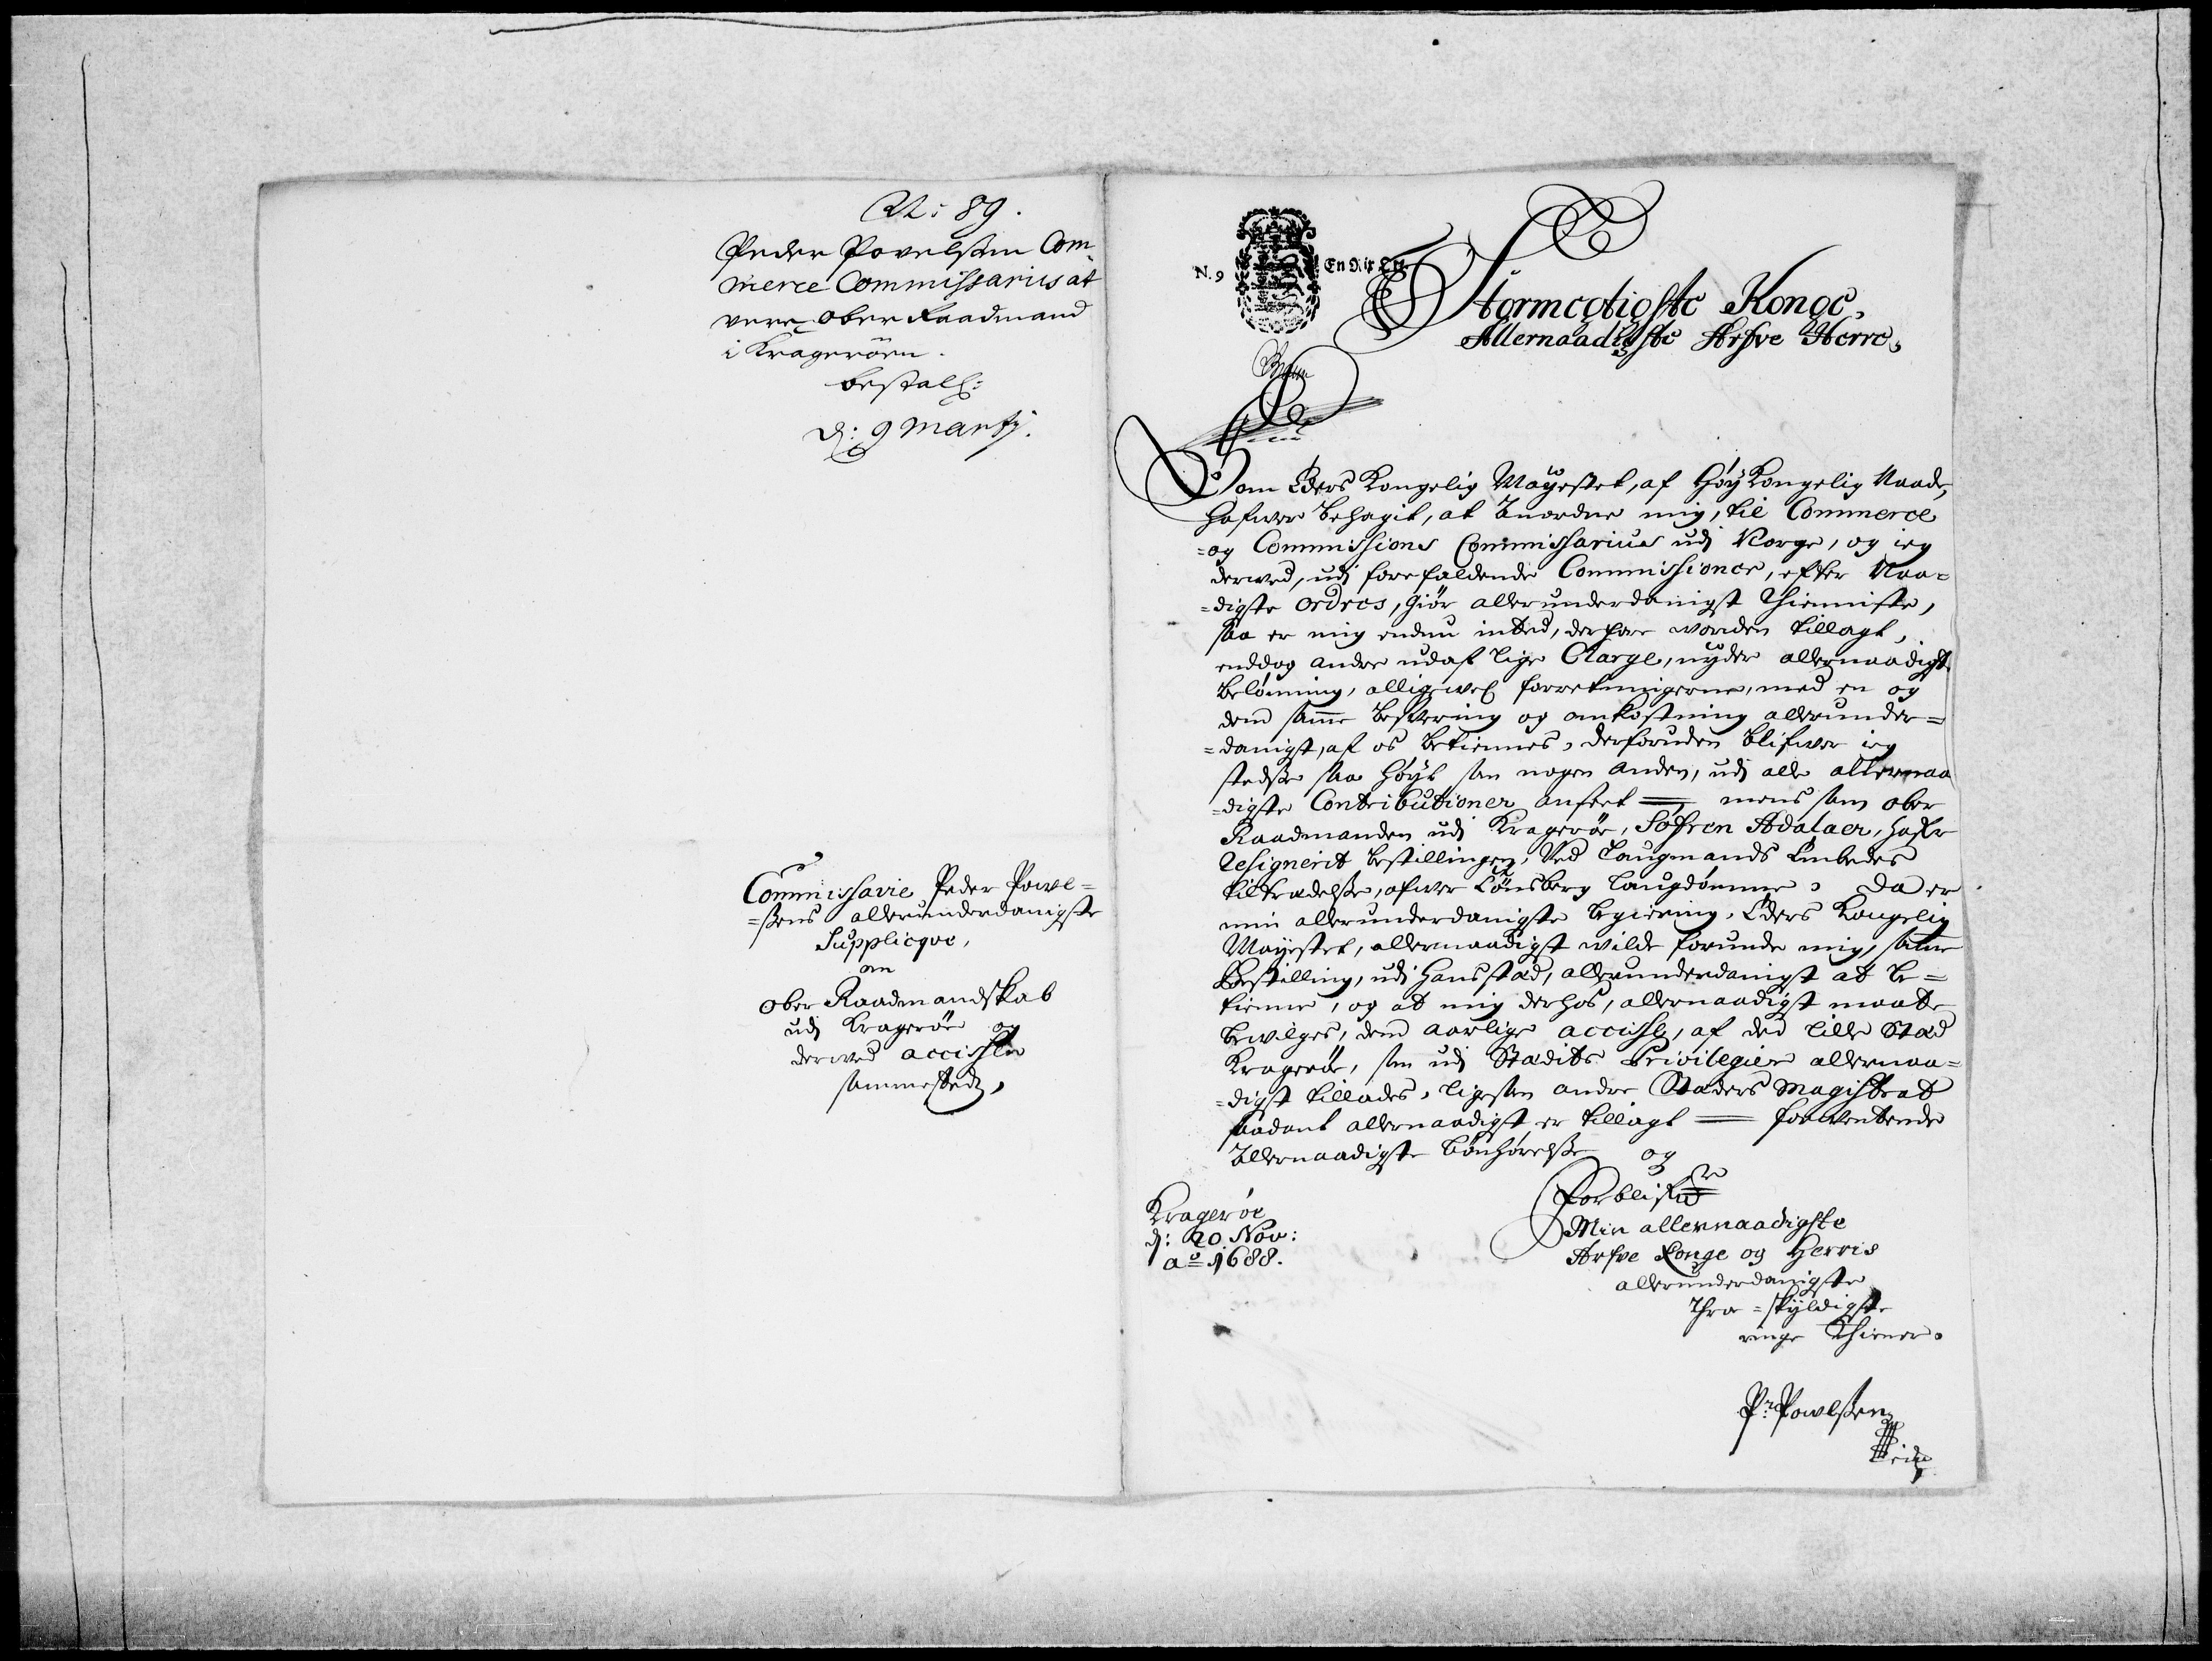 89.
Peder Povelssen Com¬
merce Commissarius at
vere ober Raadmand
i Kragerøen.
bestall:
d: 9 Martij.
Commissarie Peder Powel=
=ßens allerunderdanigste
Supplicqve,
om
ober Raadmandskab
udj Kragerøe og
derved accissen
sammesteds,
N. 9
En Rix Ort
Stormegtigste Konge,
Allernaadigste Arfve Herre,
Som Eders Kongelig Mayestet, af Høy Kongelig Naade,
hafver behagit, at anordne mig, til Commerce
=og Commissions Commissarius udj Norge, og ieg
derved, udj forefaldende Commissioner, efter Naa=
=digste ordres, giør allerunderdanigst Thienniste,
saa er mig endnu inted, derfore worden tillagt,
enddog andre udaf lige Charge, nyder allernaadigst
belønning, alligevel forretningerne, med en og
dend samme besværing og omkostning allerunder=
=danigst, af os betiennes, desforuden blifver ieg
stedse saa høyt som nogen anden, udj alle allernaa
=digste Contributioner anseet = mens som ober
Raadmanden udj Kragerøe, Søfren Adalaer, hafr
resignerit bestillingen, ved Laugmands Embedes
tiltrædelße, ofver Tønsberg Laugdømme, Da er
min allerunderdanigste begiering, Eders Kongelig
Mayestet, allernaadigst wilde forunde mig, samme
Bestilling, udj hans stad, allerunderdanigst at be=
tienne, og at mig derhos, allernaadigst maatte
bewilges, dend aarlige accisse, af ded lille Stæd
Kragerøe, som udj Stædits Privilegier allernaa=
=digst tillades, ligesom andre Stæders Magistrat
saadant allernaadigst er tillagt = forwentende
Allernaadigste bønhørelße og
forblifver
Min allernaadigste
Arfve Konge og Herris
allerunderdanigste
Throe=skyldigste
ringe Thiener.
Kragerøe
d: 20 Nov:
ao 1688.
Pr: Powelßen